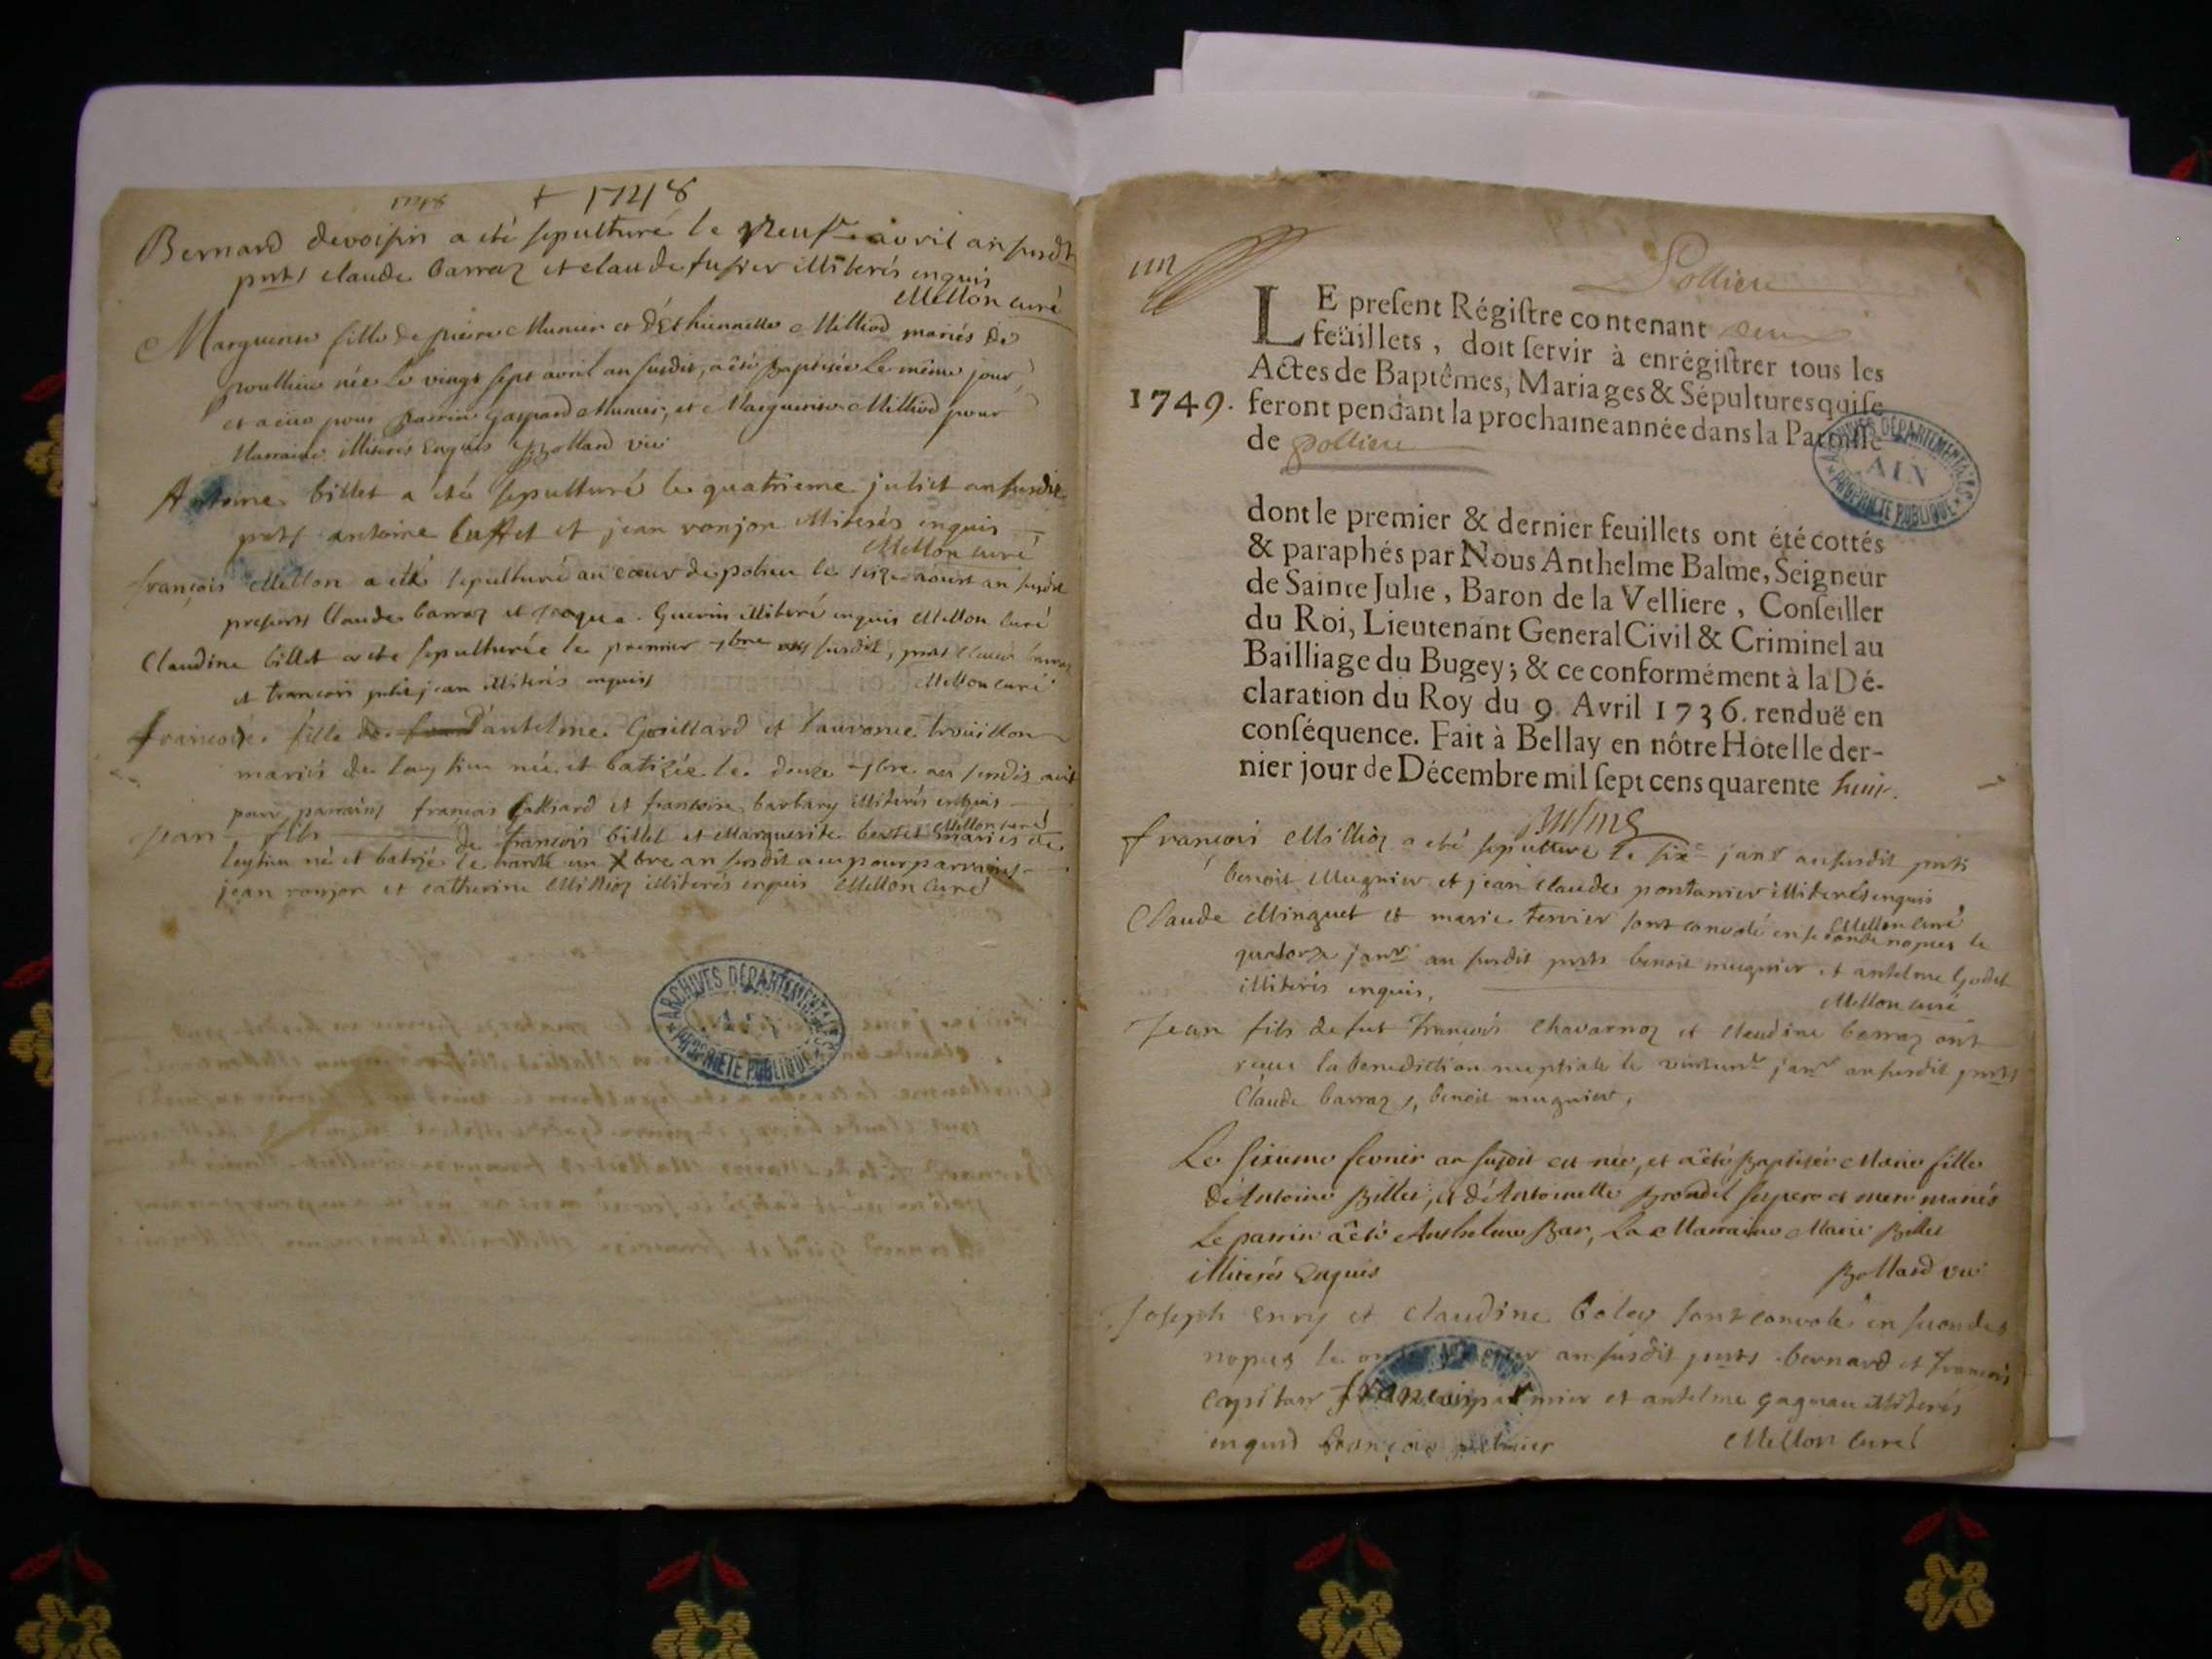 1748
+ 1748
Bernard devoisin a eté sepulturé le neuf avril an susdt
prnts claude barraz et claude fusier illiterés enquis
Mellon curé
Marguerite fille de pierre Munier et d'Ethiennette Milliod mariés de
née Le vingt sept avril an susdit, a été Baptisée Le même jour,
et a eu pour parrin Gaspard Munier, et Marguerite Milliod pour
Marraine illiterés Enquis Bollard vic
Antoine billet a eté sepulturé le quatrieme juliet an susdit
prnts antoine et jean ronjon illiterés enquis
Mellon curé
françois Mellon a eté sepulturé au cœur de polieu le seize aoust an susdit
presents Claude barraz et Guerin illiteré enquis Mellon curé
Claudine billet a ete sepulturée le premier 7bre an susdit, prnts claude barraz
et francois jean illiterés enquis Mellon curé
francoise fille de d'antelme Gaillard et laurence trouillon
mariés de leysieu née et batizée le douze 7bre an susdit ont
pour parrains francois Galliard et francoise barbary illiterés enquis
Mellon curé
Jean fils de francois billet et Marguerite mariés de
leysieu né et batisé le trante un Xbre an susdit a eu pour parrains
jean ronjon et catherine Millioz illiterés enquis Mellon curé
ARCHIVES DÉPARTEMENTALES
AIN
PROPRIETE PUBLIQUE
Pollieu
LE preſent Régiſtre contenant deux
feüillets, doit ſervir à enrégiſtrer tous les
Actes de Baptêmes, Mariages & Sépultures qui ſe
1749. feront pendant la prochaine année dans la Paroiſſe
de pollieu
ARCHIVES DÉPARTEMENTALES
AIN
PROPRIETE PUBLIQUE
dont le premier & dernier feuillets ont été cottés
& paraphés par Nous Anthelme Balme, Seigneur
de Sainte Julie, Baron de la Velliere, Conſeiller
du Roi, Lieutenant General Civil & Criminel au
Bailliage du Bugey; & ce conformément à la Dé-
claration du Roy du 9. Avril 1736. renduë en
conſéquence. Fait à Bellay en nôtre Hôtel le der-
nier jour de Décembre mil ſept cens quarente huit.
Balme
françois Millioz a eté sepulturé le six janr an susdit prnts
benoit Mugnier et jean claude pontanier illiterés enquis
Mellon curé
Claude Minguet et marie tervier sont convolé en seconde nopces le
quatorze janr an susdit prnts benoit mugnier et antelme Godet
illiterés enquis.
Mellon curé
Jean fils de fut françois Chavarnoz et claudine barraz ont
reçeu la benediction nuptiale le vintunr janr an susdit prnts
Claude barraz, benoit mugnier,
Le sixieme fevrier an susdit est née, et a été Baptisée Marie fille
d'Antoine Billet, et d'Antoinette Brondel ses pere et mere mariés
Le parrin a été Anthelme Bar, La Marraine Marie Billet
illiterés Enquis Bollard vic
Joseph Enry et Claudine boley sont convolé en secondes
nopces le an susdit prnts bernard et francois
capitan francois et antelme gagneu illiterés
enquis françois
Mellon curé